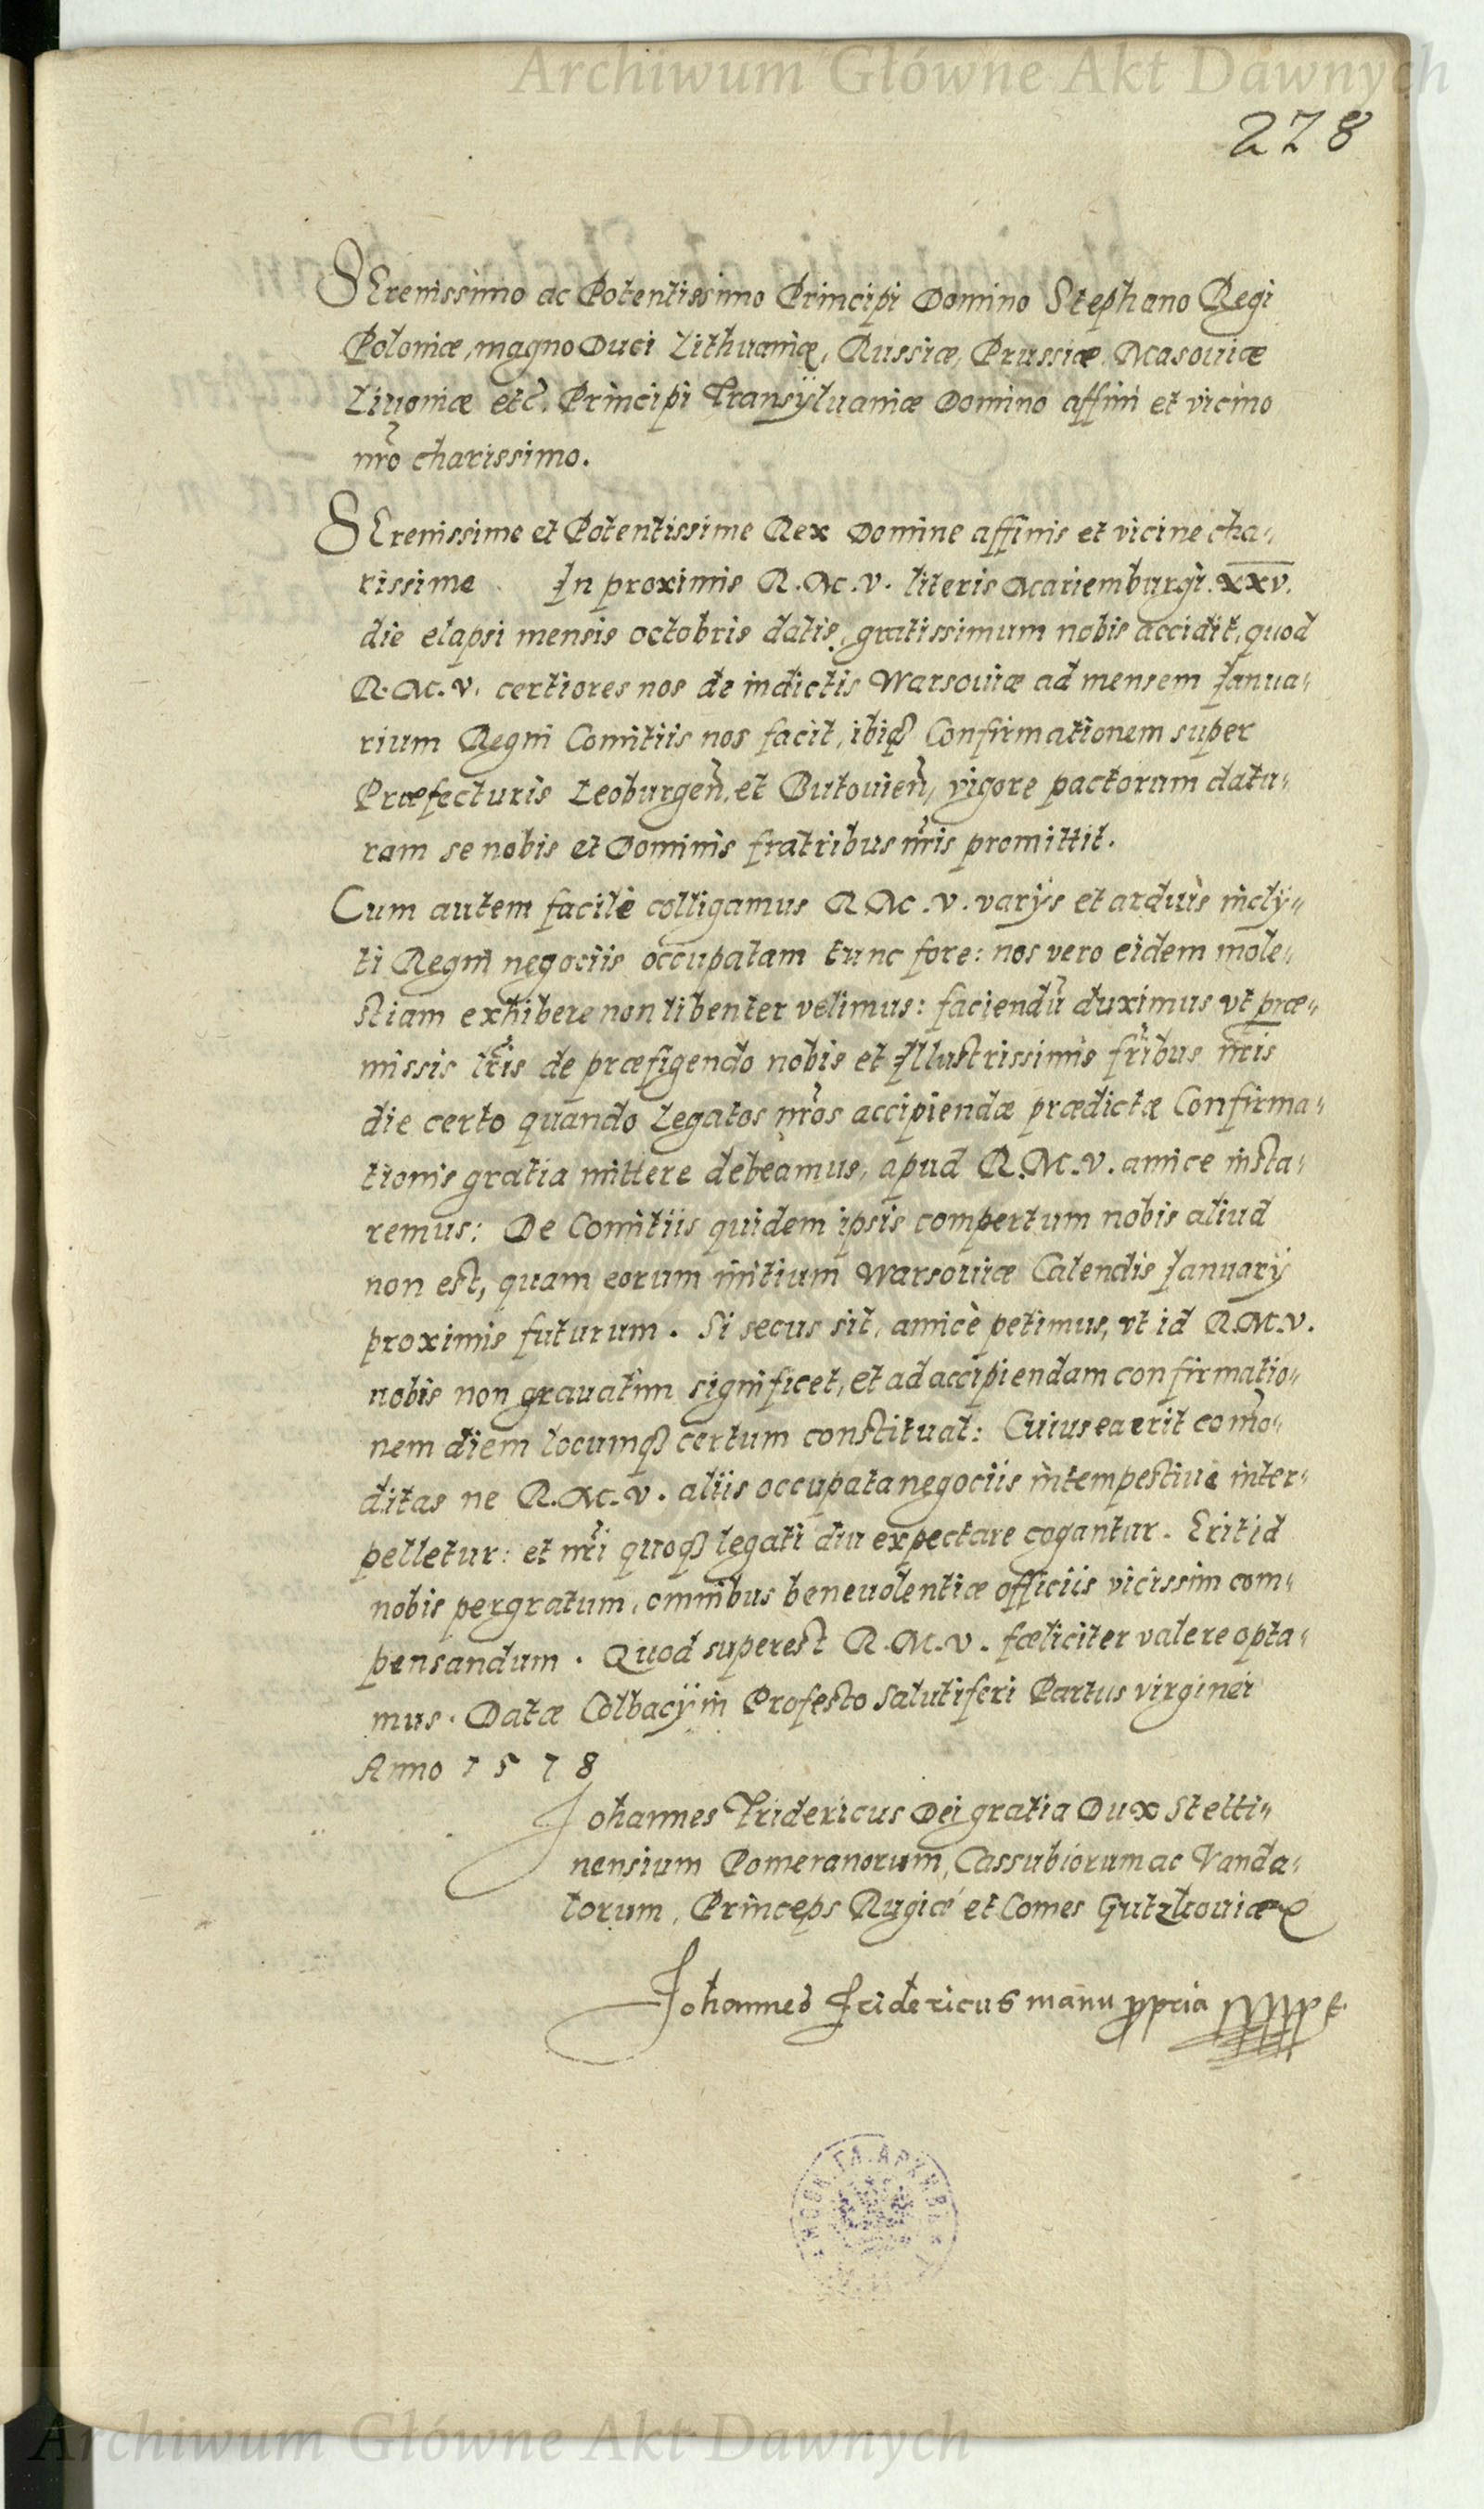 Archiwum Główne Akt Dawnych
278
SErenissimo ac Potentissimo Principi Domino Stephano Regi
Poloniæ, magno Duci Lithuaniæ, Russiæ, Prussiæ Masouiæ
Liuoniæ etc. Principi Transÿluaniæ Domino affini et vicino
nr̃o charissimo.
SErenissime et Potentissime Rex Domine affinis et vicine cha-
rissime. In proximis R. M. V. literis Mariemburgi. XXV.
die elapsi mensis octobris datis, gratissimum nobis accidit, quod
R. M. V. certiores nos de indictis Warsouiæ ad mensem Janua-
rium Regni Comitiis nos facit, ibiq; Confirmationem super
Præfecturis Leoburgeñ, et Butouieñ, vigore pactorum datu-
ram se nobis et Dominis fratribus nr̃is promittit.
Cum autem facilè colligamus R M. V. varÿs et arduis inclÿ-
ti Regni negociis occupatam tunc fore: nos vero eidem mole-
stiam exhibere non libenter velimus: faciendũ duximus vt præ-
missis lr̃is de præfigendo nobis et Illustrissimis fr̃ibus nr̃is
die certo quando Legatos nr̃os accipiendæ prædictæ Confirma-
tionis gratia mittere debeamus, apud R. M. V. amice insta-
remus: De Comitiis quidem ipsis compertum nobis aliud
non est, quam eorum initium Warsouiæ Calendis Januarÿ
proximis futurum. Si secus sit, amicè petimus, vt id R. M. V.
nobis non grauatim significet, et ad accipiendam confirmatio-
nem diem locumq; certum constituat: Cuius ea erit com̃o-
ditas ne R. M. V. aliis occupata negociis intempestiue inter-
pelletur: et nr̃i quoq; legati diu expectare cogantur. Erit id
nobis pergratum, omnibus beneuolentiæ officiis vicissim com-
pensandum. Quod superest R. M. V. fœliciter valere opta-
mus. Datæ Colbacÿ in Profesto salutiferi Partus virginei
Anno 1578
Johannes Fridericus Dei gratia Dux Stetti-
nensium Pomeranorum, Cassubiorum ac Vanda-
lorum, Princeps Rugiæ et Comes Gutzkouiæ
Johannes Fridericus manu ppria
Archiwum Główne Akt Dawnych